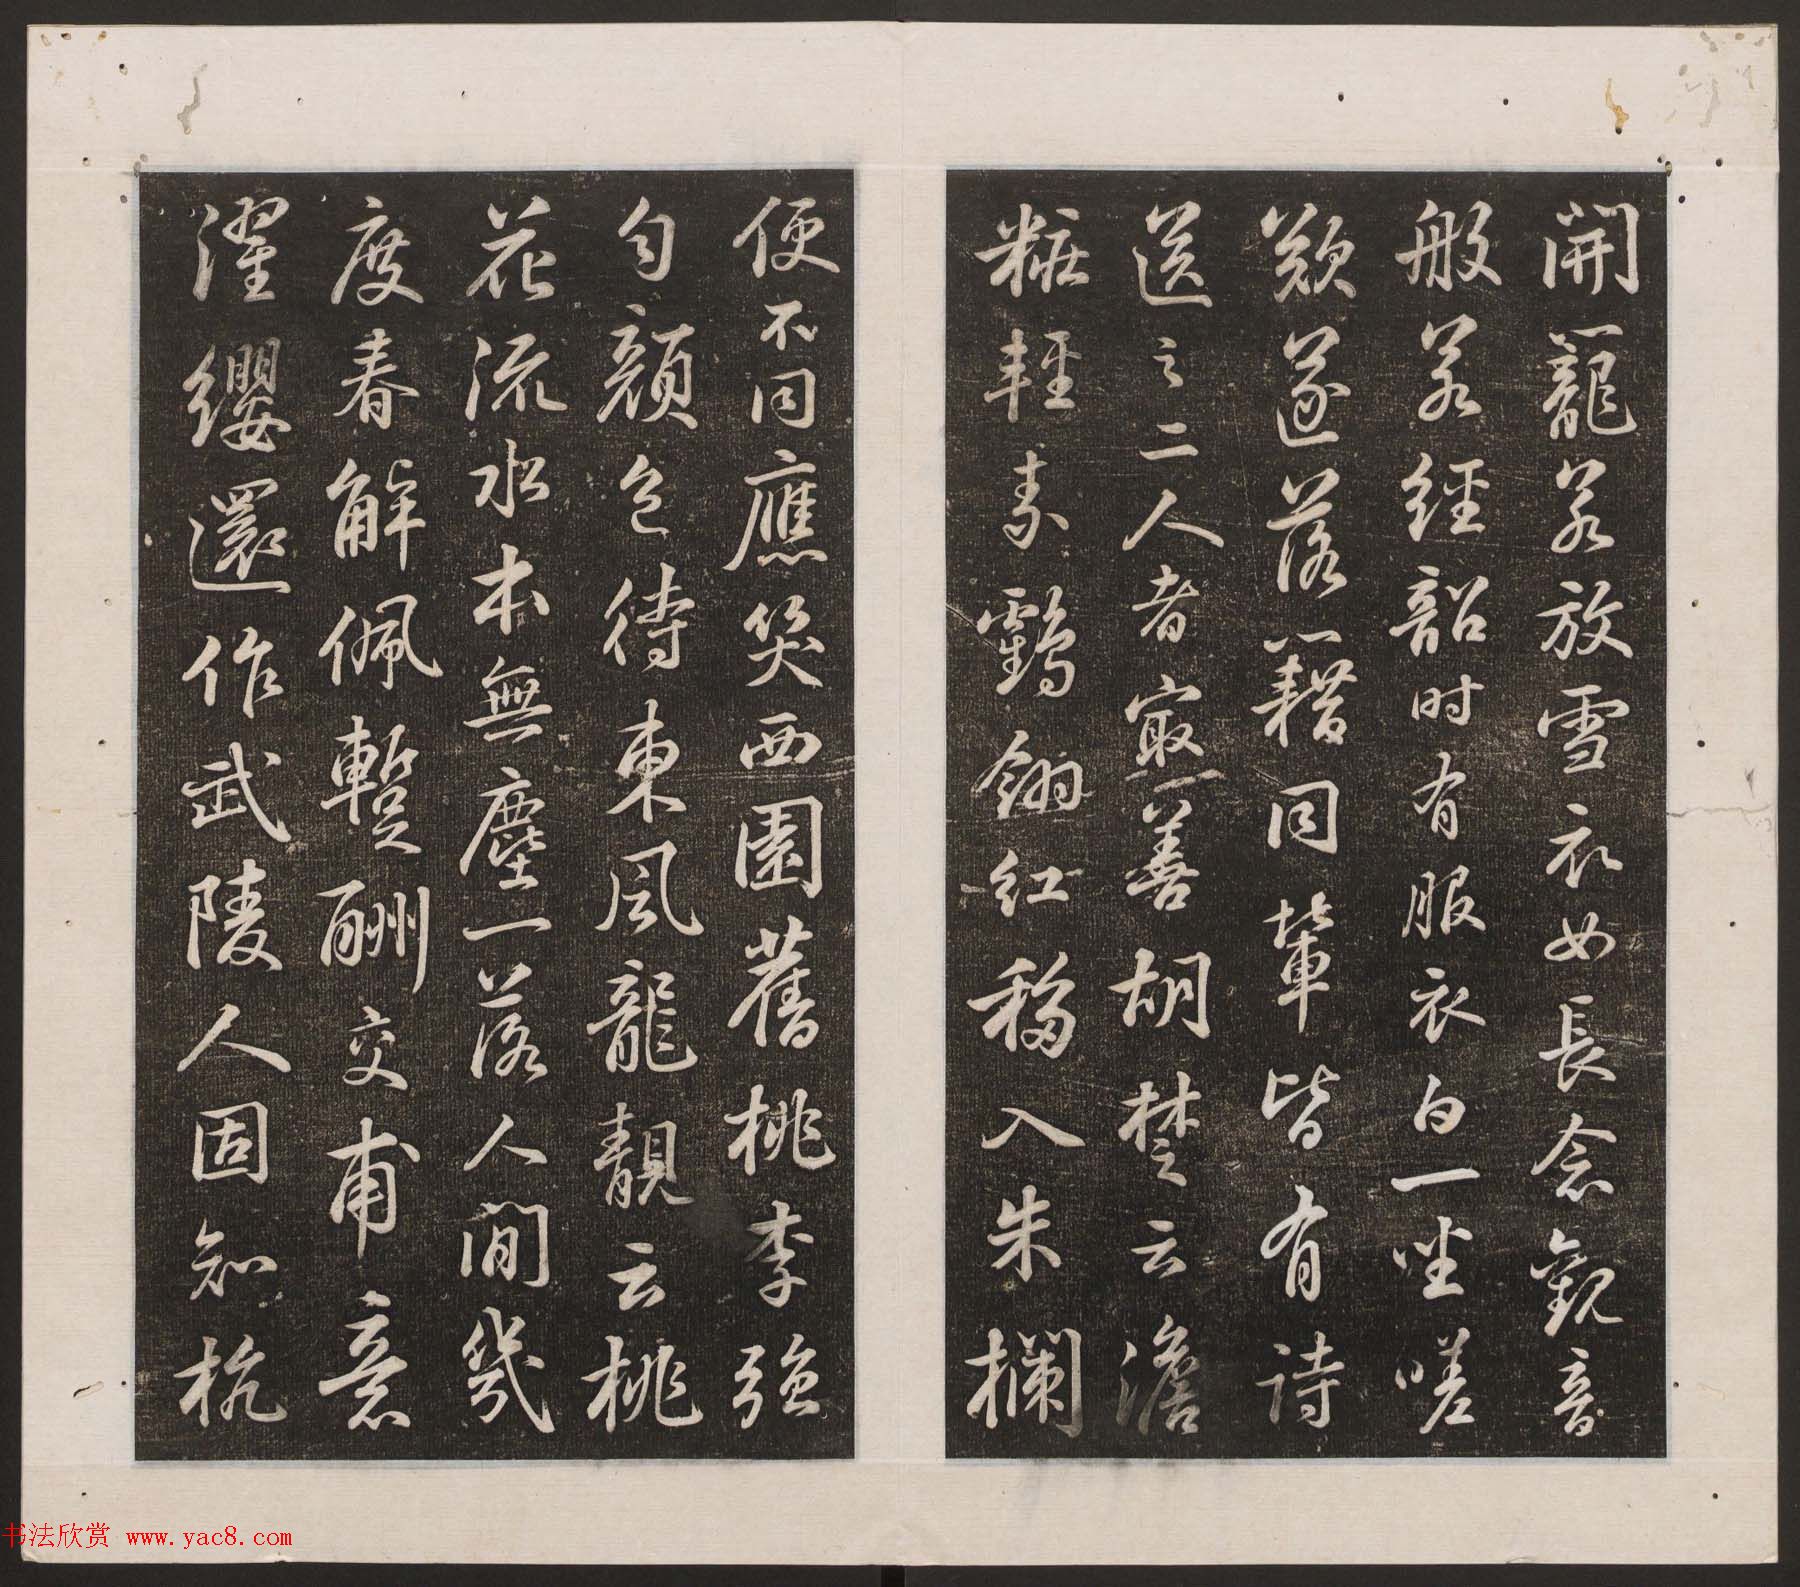 開籠若放雪衣女長念觀音
般若經韶时有服衣白一坐嗟
歎遂落籍同輩皆有詩
送之二人者最善胡楚云澹
粧輕素鶴翎紅移入朱欄
便不同應笑西園舊桃李强
匀顏色待東風龍靚云桃
花流水本無塵一落人間幾
度春解佩暫酬交甫意
濯纓還作武陵人固知杭
书法欣赏 www.yac8.com